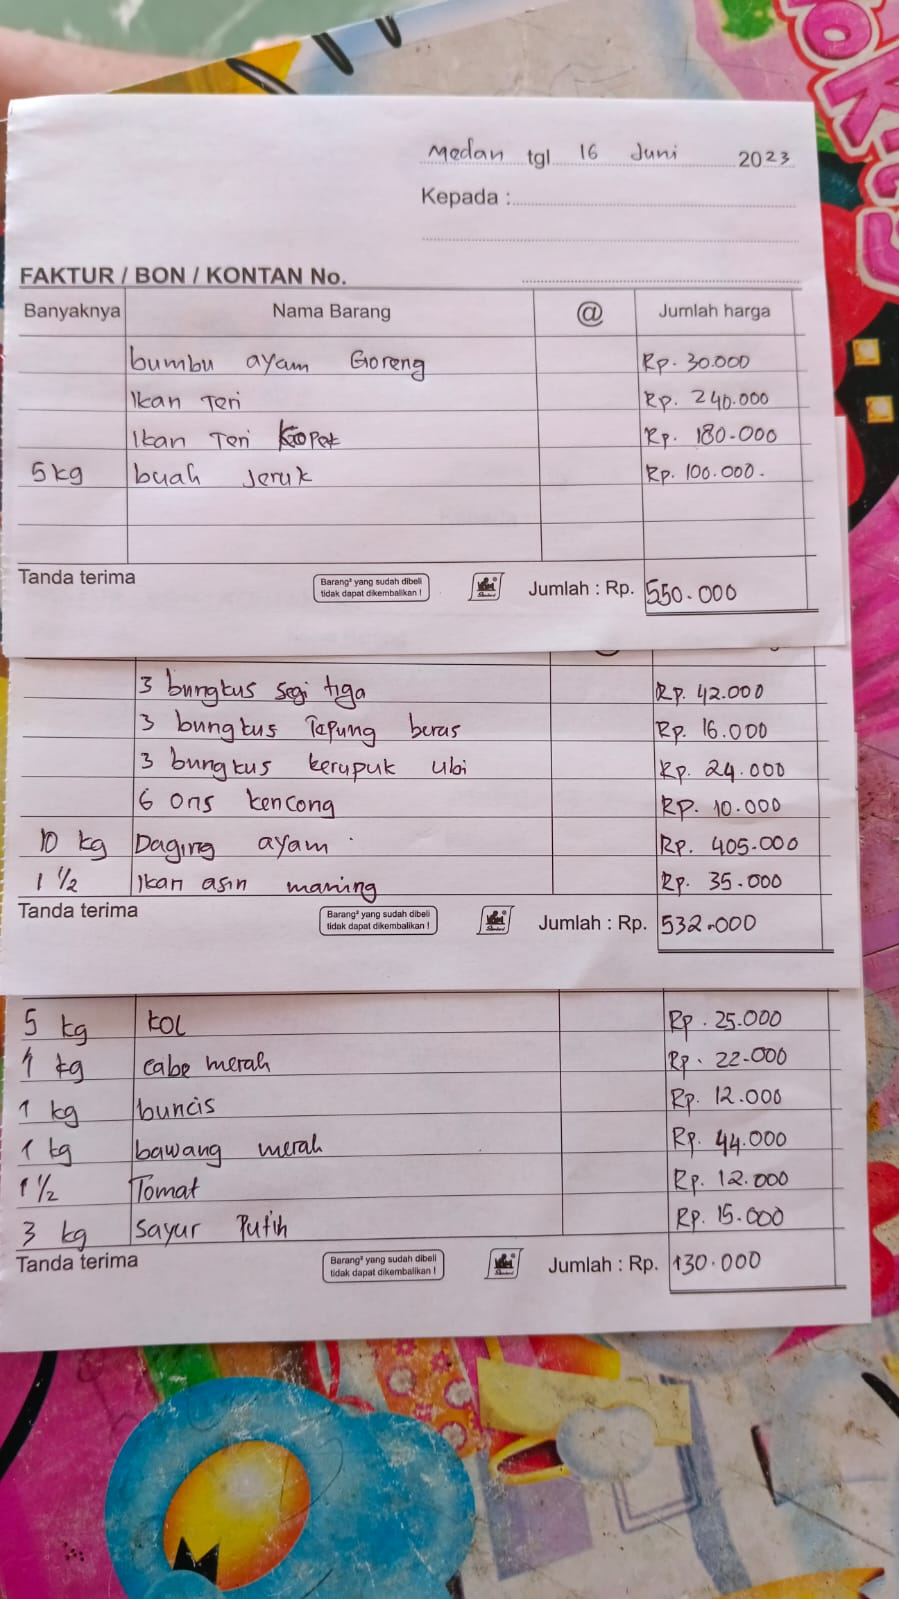 Medan tgl 16 Juni 2023
Kepada :
FAKTUR / BON / KONTAN No.
Banyaknya Nama Barang @ Jumlah harga
bumbu ayam Goreng Rp. 30.000
Ikan Teri Rp. 240.000
Ikan Teri Rp. 180.000
5 kg buah Jeruk Rp. 100.000.
Tanda terima Barang² yang sudah dibeli tidak dapat dikembalikan ! Jumlah : Rp. 550.000
3 bungkus segi tiga Rp. 42.000
3 bungkus Tepung beras Rp. 16.000
3 bungkus kerupuk ubi Rp. 24.000
6 ons kencong Rp. 10.000
10 kg Daging ayam Rp. 405.000
1 ½ Ikan asin maning Rp. 35.000
Tanda terima Barang² yang sudah dibeli tidak dapat dikembalikan ! Jumlah : Rp. 532.000
5 kg kOL Rp. 25.000
1 kg cabe merah Rp. 22.000
1 kg buncis Rp. 12.000
1 kg bawang merah Rp. 44.000
1 ½ Tomat Rp. 12.000
3 kg Sayur Putih Rp. 15.000
Tanda terima Barang² yang sudah dibeli tidak dapat dikembalikan ! Jumlah : Rp. 130.000